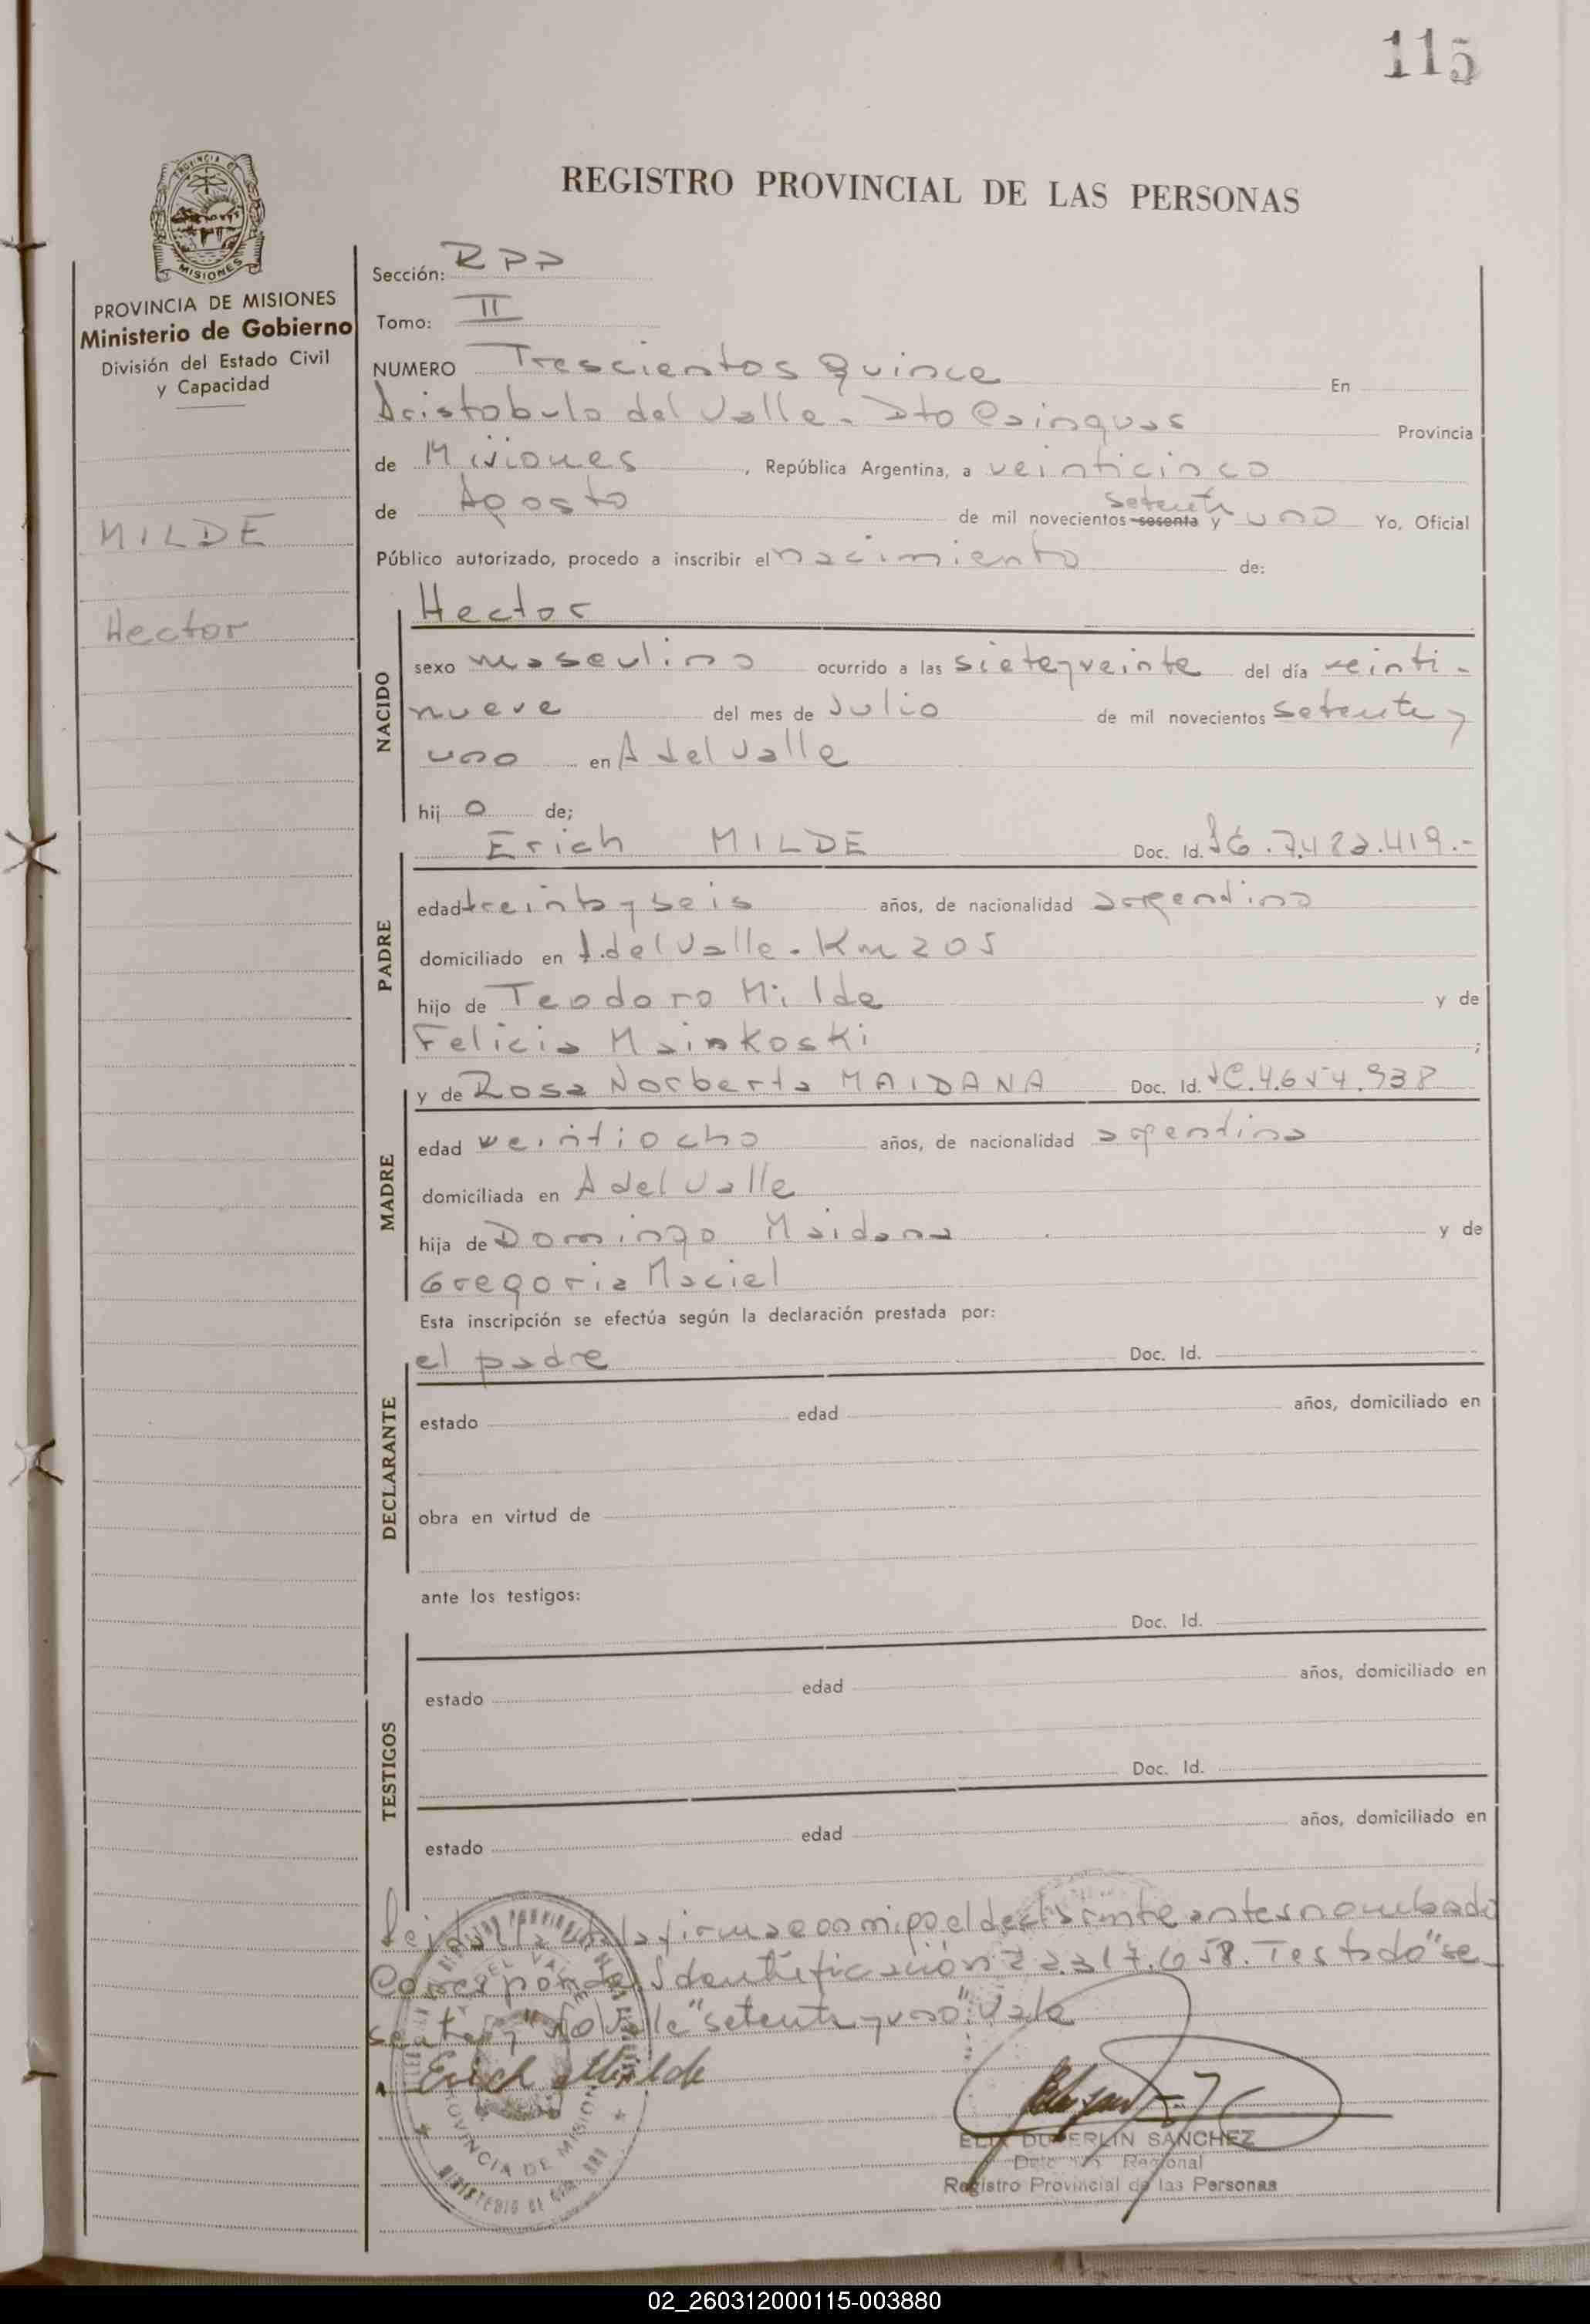 115
REGISTRO PROVINCIAL DE LAS PERSONAS
PROVINCIA DE MISIONES
Ministerio de Gobierno
División del Estado Civil
y Capacidad
MILDE
Hector
Sección: RPP
Tomo: II
NUMERO Trescientos quince En
Aristobulo del Valle - Dto Cainguas Provincia
de Misiones, República Argentina, a veinticinco
de Agosto de mil novecientos sesenta y setenta uno Yo, Oficial
Público autorizado, procedo a inscribir el nacimiento de:
NACIDO
Hector
sexo masculino ocurrido a las siete y veinte del día veinti-
nueve del mes de Julio de mil novecientos setenta y
uno en A del Valle
hijo de;
PADRE
Erich MILDE Doc. Id. 7.482.419.-
edad treinta y seis años, de nacionalidad argentino
domiciliado en A. del Valle - Km 205
hijo de Teodoro Milde y de
Felicia Mainkoski;
MADRE
y de Rosa Norberta MAIDANA Doc. Id. 4.654.938
edad veintiocho años, de nacionalidad argentina
domiciliada en A del Valle
hija de Domingo Maidana y de
Gregoria Maciel
Esta inscripción se efectúa según la declaración prestada por:
DECLARANTE
el padre Doc. Id.
estado edad años, domiciliado en
obra en virtud de
ante los testigos:
TESTIGOS
Doc. Id.
estado edad años, domiciliado en
Doc. Id.
estado edad años, domiciliado en
Leida la firma conmigo el declarante antes nombrado
Corresponde Identificación 22.317.658. Testado "se
senta y" No Vale "setenta y uno": Vale
Erich Milde
PROVINCIA DE MISIONES
SANCHEZ
Regional
Registro Provincial de las Personas
02_260312000115-003880